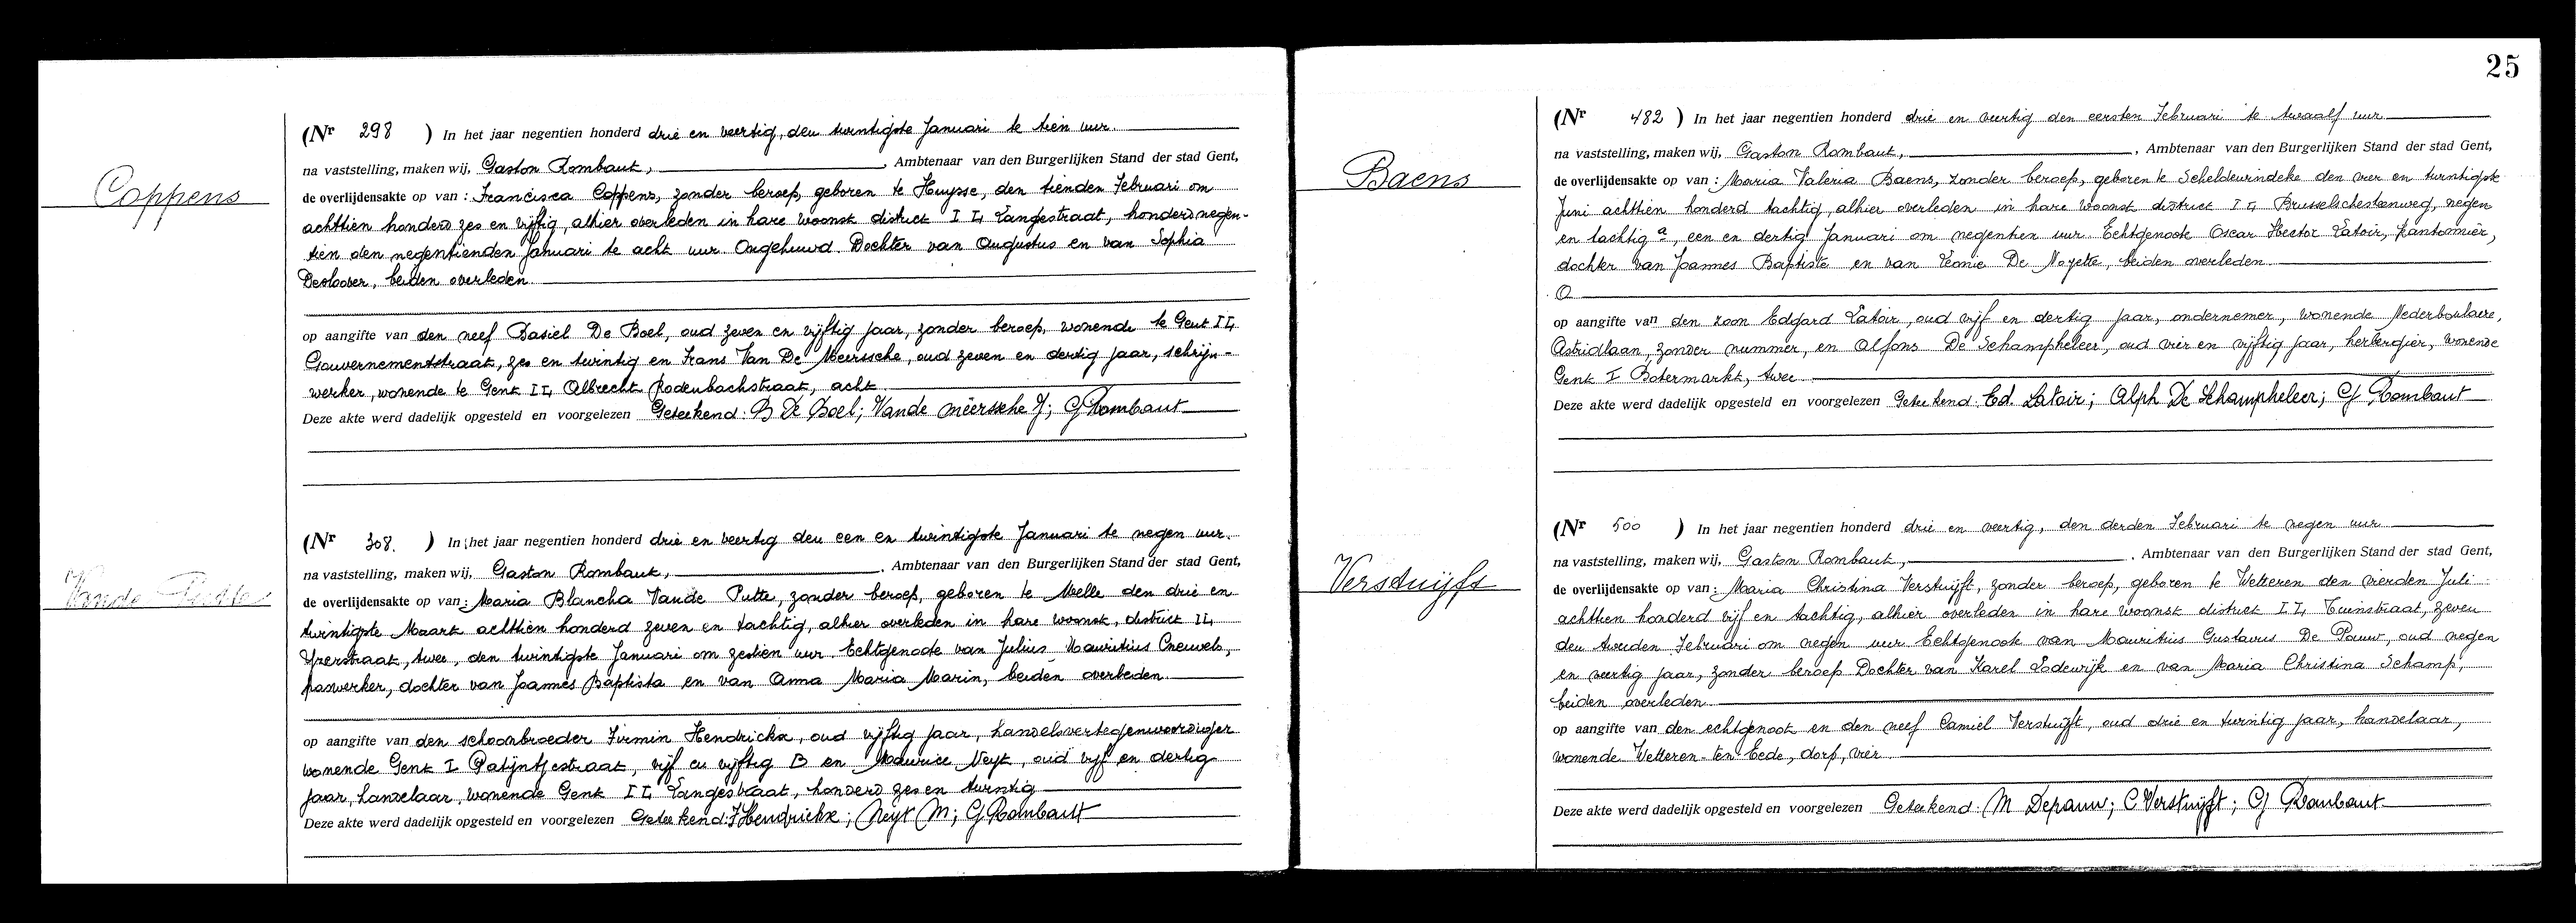 Coppens
(Nr 298 ) In het jaar negentien honderd drie en veertig, den twintigste Januari te tien uur.
na vaststelling, maken wij, Gaston Rombaut, , Ambtenaar van den Burgerlijken Stand der stad Gent,
de overlijdensakte op van : Francisca Coppens, zonder beroep, geboren te Huysse, den tienden Februari om
achttien honderd zes en vijftig, alhier overleden in hare woonst district I L, Langestraat, honderd negen-
tien den negentienden Januari te acht uur. Ongehuwd. Dochter van Augustus en van Sophia
Desloover, beiden overleden.
op aangifte van den neef Basiel De Boel, oud zeven en vijftig jaar, zonder beroep, wonende te Gent I L,
Gouvernementstraat, zes en twintig en Frans Van De Meerssche, oud zeven en dertig jaar, schrijn-
werker, wonende te Gent I L, Albrecht Rodenbachstraat, acht.
Deze akte werd dadelijk opgesteld en voorgelezen Geteekend: B De Boel; Vande meerssche f; G Rombaut
Vande Putte
(Nr 308. ) In het jaar negentien honderd drie en veertig den een en twintigste Januari te negen uur.
na vaststelling, maken wij, Gaston Rombaut, , Ambtenaar van den Burgerlijken Stand der stad Gent,
de overlijdensakte op van : Maria Blancha Vande Putte, zonder beroep, geboren te Melle den drie en
twintigste Maart achttien honderd zeven en tachtig, alhier overleden in hare woonst, district I L,
Yzerstraat, twee, den twintigste Januari om zestien uur. Echtgenoote van Julius Mauritius Cneuvels,
paswerker, dochter van Joannes Baptista en van Anna Maria Marin, beiden overleden.
op aangifte van den schoonbroeder Firmin Hendrickx, oud vijftig jaar, handelsvertegenwoordiger
wonende Gent I Patijntjestraat, vijf en vijftig B en Maurice Neyt, oud vijf en dertig
jaar, handelaar, wonende Gent I L, Langestraat, honderd zes en twintig
Deze akte werd dadelijk opgesteld en voorgelezen Geteekend: F Hendrickx; Neyt M; G Rombaut
25
Baens
(Nr 482 ) In het jaar negentien honderd drie en veertig den eersten Februari te twaalf uur
na vaststelling, maken wij, Gaston Rombaut, , Ambtenaar van den Burgerlijken Stand der stad Gent,
de overlijdensakte op van : Maria Valeria Baens, zonder beroep, geboren te Scheldewindeke den vier en twintigste
Juni achttien honderd tachtig, alhier overleden in hare woonst district I L, Brusselschesteenweg, negen
en tachtig a, een en dertig Januari om negentien uur. Echtgenoote Oscar Hector Latoir, kantonnier,
dochter van Joannes Baptiste en van Leonie De Noyette, beiden overleden.
op aangifte van den zoon Edgard Latoir, oud vijf en dertig jaar, ondernemer, wonende Nederboulaere,
Astridlaan, zonder nummer, en Alfons De Schampheleer, oud vier en vijftig jaar, herbergier, wonende
Gent I Botermarkt, twee
Deze akte werd dadelijk opgesteld en voorgelezen Geteekend: Ed. Latoir; Alph De Schampheleer; G Rombaut
Verstuijft
(Nr 500 ) In het jaar negentien honderd drie en veertig, den derden Februari te negen uur
na vaststelling, maken wij, Gaston Rombaut, , Ambtenaar van den Burgerlijken Stand der stad Gent,
de overlijdensakte op van : Maria Christina Verstuijft, zonder beroep, geboren te Wetteren den vierden Juli
achttien honderd vijf en tachtig, alhier overleden in hare woonst district I L, Tuinstraat, zeven
den tweeden Februari om negen uur Echtgenoote van Mauritius Gustavus De Pauw, oud negen
en veertig jaar, zonder beroep Dochter van Karel Lodewijk en van Maria Christina Schamp,
beiden overleden
op aangifte van den echtgenoot en den neef Camiel Verstuijft, oud drie en twintig jaar, handelaar,
wonende Wetteren-ten-Eede, dorp, vier
Deze akte werd dadelijk opgesteld en voorgelezen Geteekend: M Depauw; C Verstuijft; G Rombaut